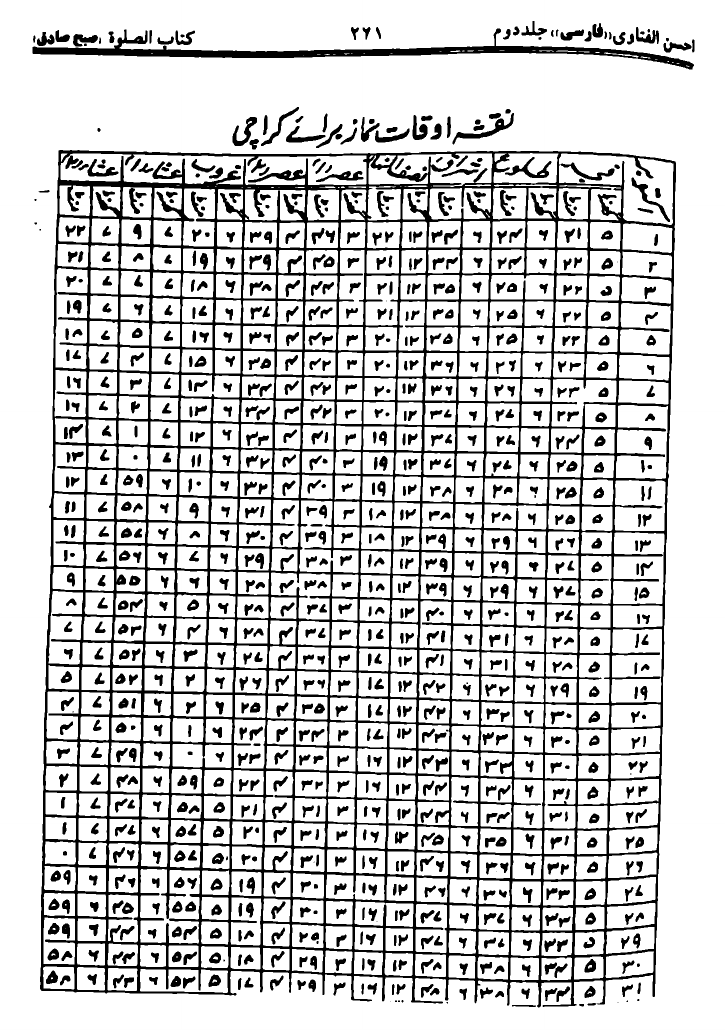 احسن الفتاوی «فارسی» جلد دوم ۲۶۱ کتاب الصلوة (صبح صادق)
نقشہ اوقات نماز برائے کراچی
اکتوبر فجر طلوع اشراق نصف النہار عصر ۱ عصر ۲ غروب عشاء ۱ عشاء ۲
گھنٹہ منٹ گھنٹہ منٹ گھنٹہ منٹ گھنٹہ منٹ گھنٹہ منٹ گھنٹہ منٹ گھنٹہ منٹ گھنٹہ منٹ گھنٹہ منٹ
۱ ۵ ۲۱ ۶ ۲۴ ۶ ۳۴ ۱۲ ۲۲ ۳ ۴۶ ۴ ۳۹ ۶ ۲۰ ۷ ۹ ۷ ۲۲
۲ ۵ ۲۲ ۶ ۲۴ ۶ ۳۴ ۱۲ ۲۱ ۳ ۴۵ ۴ ۳۹ ۶ ۱۹ ۷ ۸ ۷ ۲۱
۳ ۵ ۲۲ ۶ ۲۵ ۶ ۳۵ ۱۲ ۲۱ ۳ ۴۴ ۴ ۳۸ ۶ ۱۸ ۷ ۷ ۷ ۲۰
۴ ۵ ۲۲ ۶ ۲۵ ۶ ۳۵ ۱۲ ۲۱ ۳ ۴۴ ۴ ۳۷ ۶ ۱۷ ۷ ۶ ۷ ۱۹
۵ ۵ ۲۲ ۶ ۲۵ ۶ ۳۵ ۱۲ ۲۰ ۳ ۴۳ ۴ ۳۶ ۶ ۱۶ ۷ ۵ ۷ ۱۸
۶ ۵ ۲۳ ۶ ۲۶ ۶ ۳۶ ۱۲ ۲۰ ۳ ۴۲ ۴ ۳۵ ۶ ۱۵ ۷ ۴ ۷ ۱۷
۷ ۵ ۲۳ ۶ ۲۶ ۶ ۳۶ ۱۲ ۲۰ ۳ ۴۲ ۴ ۳۴ ۶ ۱۴ ۷ ۳ ۷ ۱۶
۸ ۵ ۲۳ ۶ ۲۷ ۶ ۳۷ ۱۲ ۲۰ ۳ ۴۲ ۴ ۳۴ ۶ ۱۳ ۷ ۲ ۷ ۱۶
۹ ۵ ۲۴ ۶ ۲۷ ۶ ۳۷ ۱۲ ۱۹ ۳ ۴۱ ۴ ۳۳ ۶ ۱۲ ۷ ۱ ۷ ۱۴
۱۰ ۵ ۲۵ ۶ ۲۷ ۶ ۳۷ ۱۲ ۱۹ ۳ ۴۰ ۴ ۳۲ ۶ ۱۱ ۷ ۰ ۷ ۱۳
۱۱ ۵ ۲۵ ۶ ۲۸ ۶ ۳۸ ۱۲ ۱۹ ۳ ۴۰ ۴ ۳۲ ۶ ۱۰ ۶ ۵۹ ۷ ۱۲
۱۲ ۵ ۲۵ ۶ ۲۸ ۶ ۳۸ ۱۲ ۱۸ ۳ ۳۹ ۴ ۳۱ ۶ ۹ ۶ ۵۸ ۷ ۱۱
۱۳ ۵ ۲۶ ۶ ۲۹ ۶ ۳۹ ۱۲ ۱۸ ۳ ۳۹ ۴ ۳۰ ۶ ۸ ۶ ۵۷ ۷ ۱۱
۱۴ ۵ ۲۷ ۶ ۲۹ ۶ ۳۹ ۱۲ ۱۸ ۳ ۳۸ ۴ ۲۹ ۶ ۷ ۶ ۵۶ ۷ ۱۰
۱۵ ۵ ۲۷ ۶ ۲۹ ۶ ۳۹ ۱۲ ۱۸ ۳ ۳۸ ۴ ۲۸ ۶ ۶ ۶ ۵۵ ۷ ۹
۱۶ ۵ ۲۷ ۶ ۳۰ ۶ ۴۰ ۱۲ ۱۸ ۳ ۳۷ ۴ ۲۸ ۶ ۵ ۶ ۵۴ ۷ ۸
۱۷ ۵ ۲۸ ۶ ۳۱ ۶ ۴۱ ۱۲ ۱۷ ۳ ۳۷ ۴ ۲۸ ۶ ۴ ۶ ۵۳ ۷ ۷
۱۸ ۵ ۲۸ ۶ ۳۱ ۶ ۴۱ ۱۲ ۱۷ ۳ ۳۶ ۴ ۲۷ ۶ ۳ ۶ ۵۲ ۷ ۶
۱۹ ۵ ۲۹ ۶ ۳۲ ۶ ۴۲ ۱۲ ۱۷ ۳ ۳۶ ۴ ۲۶ ۶ ۲ ۶ ۵۲ ۷ ۵
۲۰ ۵ ۳۰ ۶ ۳۲ ۶ ۴۲ ۱۲ ۱۷ ۳ ۳۵ ۴ ۲۵ ۶ ۲ ۶ ۵۱ ۷ ۴
۲۱ ۵ ۳۰ ۶ ۳۳ ۶ ۴۳ ۱۲ ۱۷ ۳ ۳۴ ۴ ۲۴ ۶ ۱ ۶ ۵۰ ۷ ۴
۲۲ ۵ ۳۰ ۶ ۳۳ ۶ ۴۳ ۱۲ ۱۶ ۳ ۳۳ ۴ ۲۳ ۶ ۰ ۶ ۴۹ ۷ ۳
۲۳ ۵ ۳۱ ۶ ۳۴ ۶ ۴۴ ۱۲ ۱۶ ۳ ۳۲ ۴ ۲۲ ۵ ۵۹ ۶ ۴۸ ۷ ۲
۲۴ ۵ ۳۱ ۶ ۳۴ ۶ ۴۴ ۱۲ ۱۶ ۳ ۳۱ ۴ ۲۱ ۵ ۵۸ ۶ ۴۷ ۷ ۱
۲۵ ۵ ۳۱ ۶ ۳۵ ۶ ۴۵ ۱۲ ۱۶ ۳ ۳۱ ۴ ۲۰ ۵ ۵۷ ۶ ۴۷ ۷ ۱
۲۶ ۵ ۳۲ ۶ ۳۶ ۶ ۴۶ ۱۲ ۱۶ ۳ ۳۱ ۴ ۲۰ ۵ ۵۷ ۶ ۴۶ ۷ ۰
۲۷ ۵ ۳۳ ۶ ۳۶ ۶ ۴۶ ۱۲ ۱۶ ۳ ۳۰ ۴ ۱۹ ۵ ۵۶ ۶ ۴۶ ۶ ۵۹
۲۸ ۵ ۳۳ ۶ ۳۷ ۶ ۴۷ ۱۲ ۱۶ ۳ ۳۰ ۴ ۱۹ ۵ ۵۵ ۶ ۴۵ ۶ ۵۹
۲۹ ۵ ۳۳ ۶ ۳۷ ۶ ۴۷ ۱۲ ۱۶ ۳ ۲۹ ۴ ۱۸ ۵ ۵۴ ۶ ۴۴ ۶ ۵۹
۳۰ ۵ ۳۴ ۶ ۳۸ ۶ ۴۸ ۱۲ ۱۶ ۳ ۲۹ ۴ ۱۸ ۵ ۵۴ ۶ ۴۴ ۶ ۵۸
۳۱ ۵ ۳۴ ۶ ۳۸ ۶ ۴۸ ۱۲ ۱۶ ۳ ۲۹ ۴ ۱۷ ۵ ۵۳ ۶ ۴۳ ۶ ۵۸